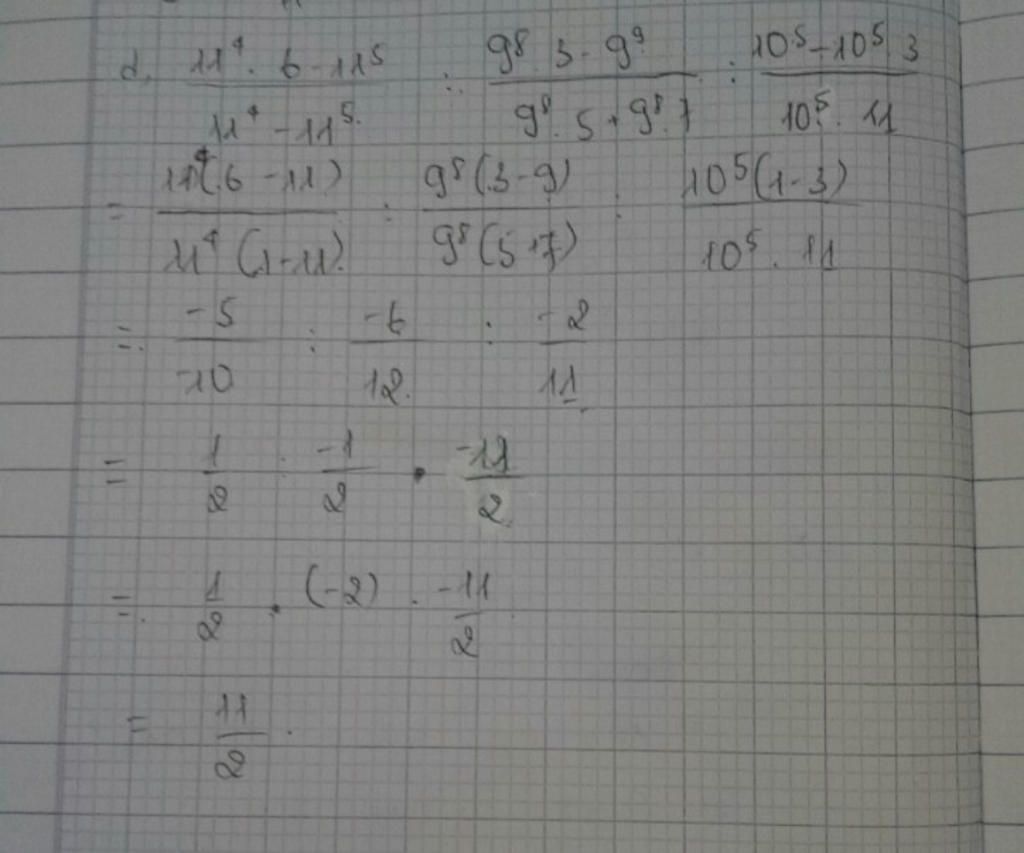 d. (11⁴ . 6 - 11⁵)/(11⁴ - 11⁵) : (9⁸ . 3 - 9⁹)/(9⁸ . 5 + 9⁸ . 7) : (10⁵ - 10⁵ 3)/(10⁵ . 11)
= 11⁴(6 - 11)/11⁴(1 - 11) : 9⁸(3 - 9)/9⁸(5 + 7) : 10⁵(1 - 3)/(10⁵ . 11)
= -5/-10 : -6/12 : -2/11
= 1/2 : -1/2 . -11/2
= 1/2 . (-2) . -11/2
= 11/2 .